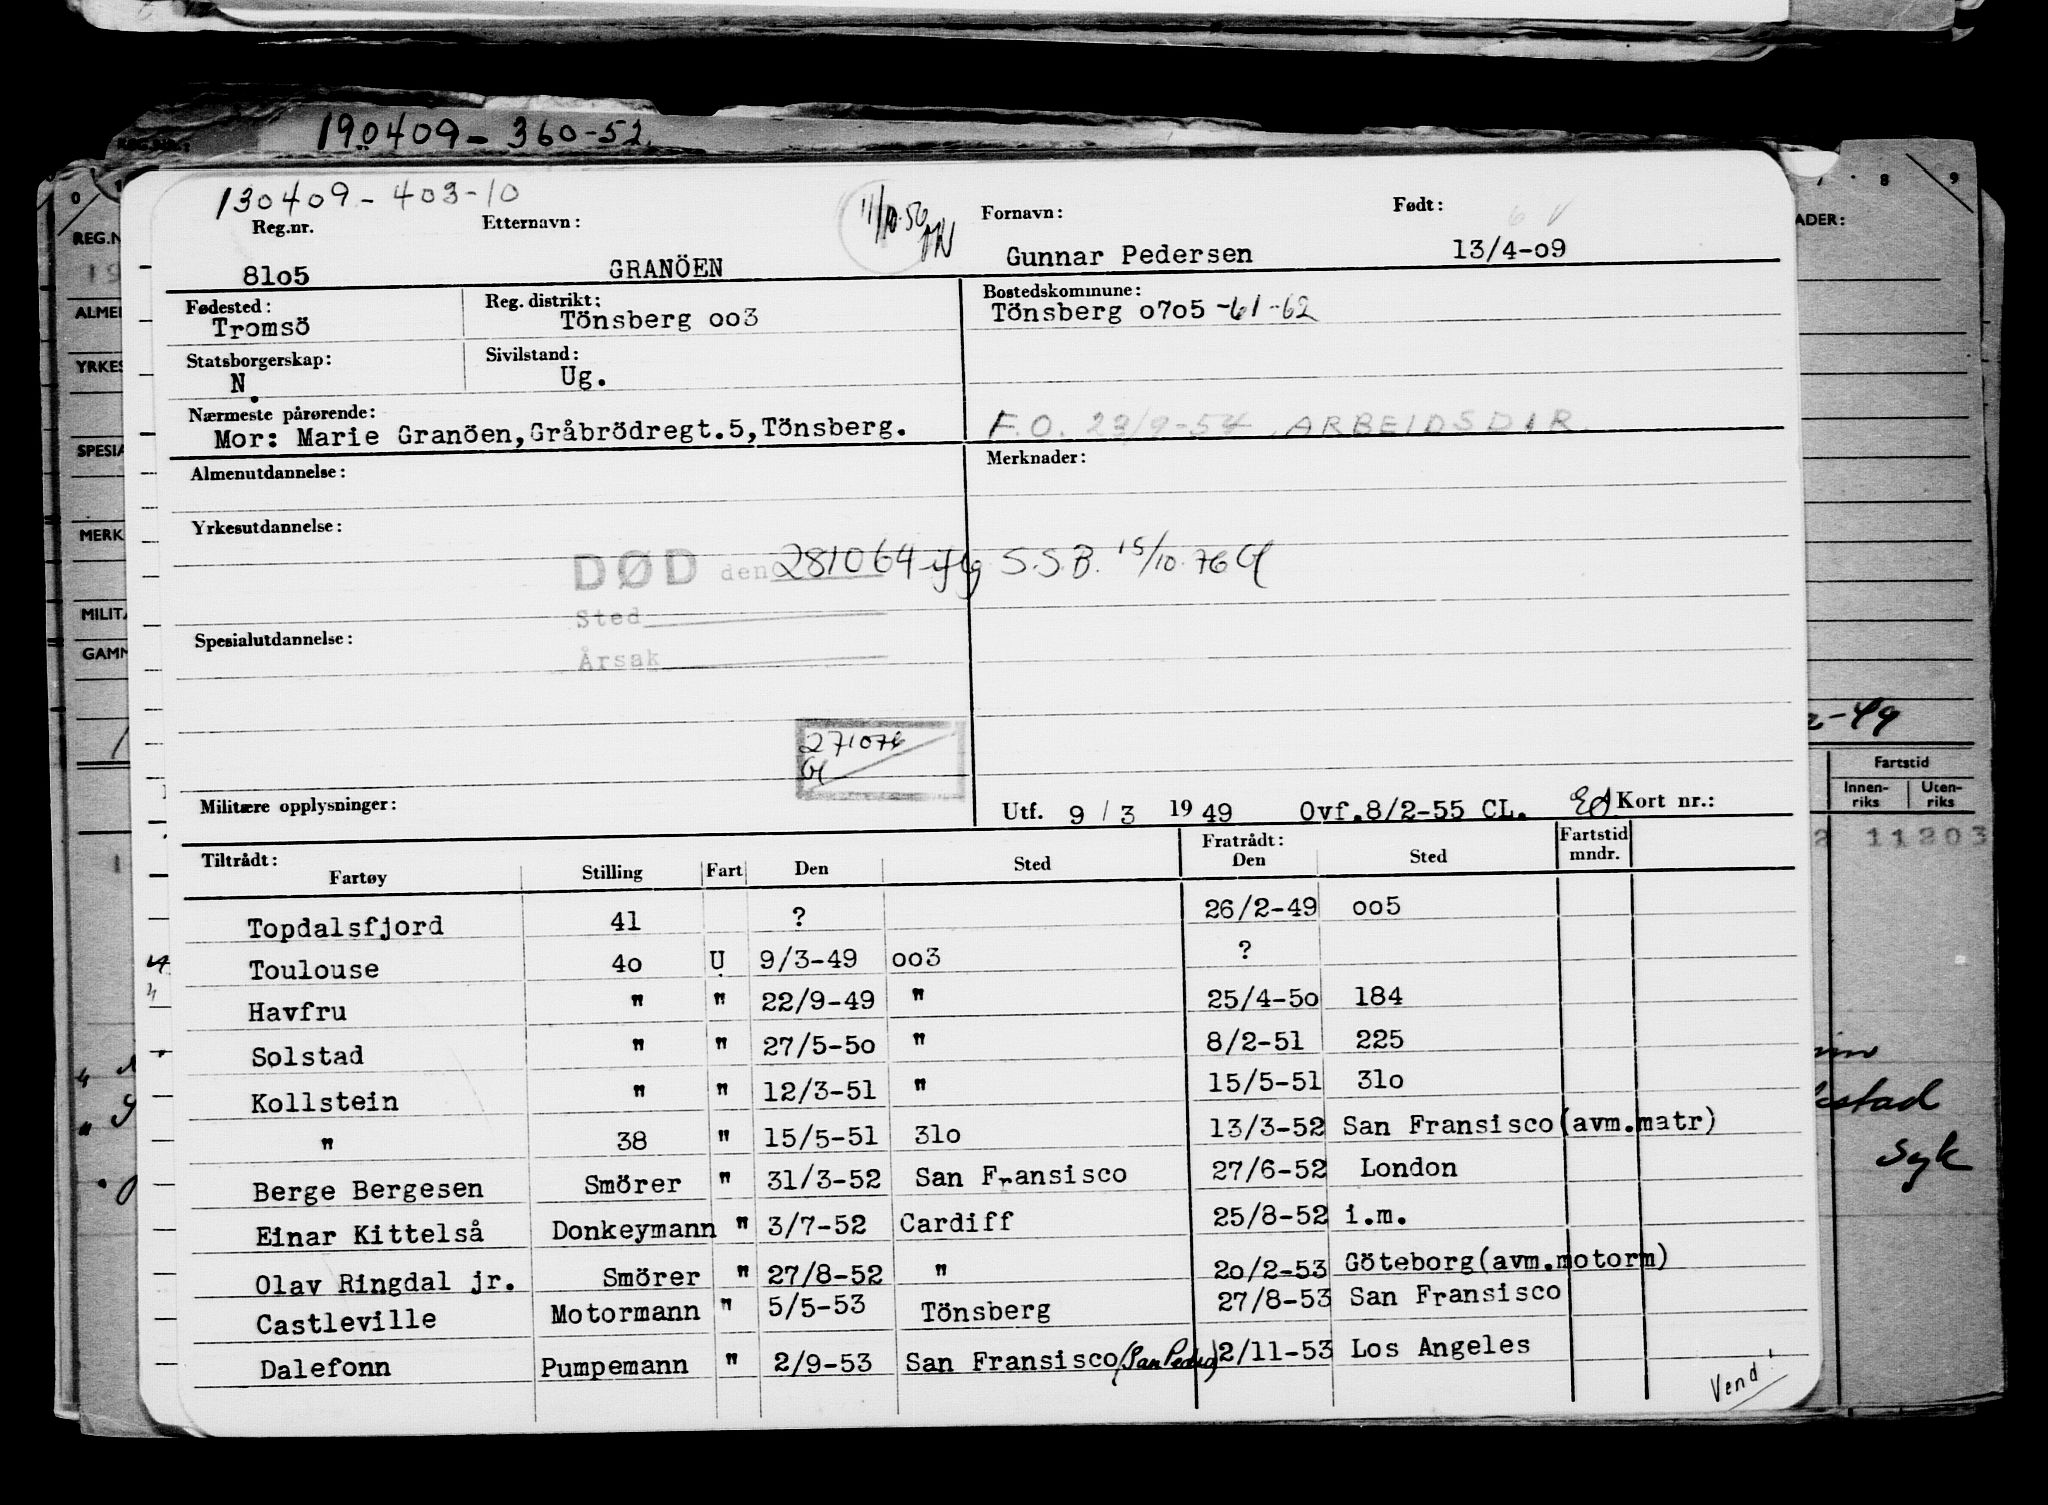 190409-360-52.
130409-403-10
Reg.nr. Etternavn: 11/10.56 Fornavn: Født:
81o5 GRANÖEN Gunnar Pedersen 13/4-o9
Fødested: Reg. distrikt: Bostedskommune:
Tromsö Tönsberg oo3 Tönsberg o7o5 -61-62
Statsborgerskap: Sivilstand:
N. Ug.
Nærmeste pårørende:
Mor: Marie Granöen,Gråbrödregt.5,Tönsberg. F.O. 23/9-54 ARBEIDSDIR.
Almenutdannelse: Merknader:
Yrkesutdannelse:
DØD den 281064 iflg S.S.B. 15/10.76 Gl
Sted
Spesialutdannelse:
Årsak
271076
Gl
Militære opplysninger: Utf. 9 / 3 19 49 Ovf.8/2-55 CL. Kort nr.:
Tiltrådt: Fratrådt: Fartstid
Fartøy Stilling Fart Den Sted Den Sted mndr.
Topdalsfjord 41 ? 26/2-49 oo5
Toulouse 4o U 9/3-49 oo3 ?
Havfru " " 22/9-49 " 25/4-5o 184
Solstad " " 27/5-5o " 8/2-51 225
Kollstein " " 12/3-51 " 15/5-51 31o
" 38 " 15/5-51 31o 13/3-52 San Fransisco(avm.matr)
Berge Bergesen Smörer " 31/3-52 San Fransisco 27/6-52 London
Einar Kittelså Donkeymann " 3/7-52 Cardiff 25/8-52 i.m.
Olav Ringdal jr. Smörer " 27/8-52 " 2o/2-53 Göteborg(avm.motorm)
Castleville Motormann " 5/5-53 Tönsberg 27/8-53 San Fransisco
Dalefonn Pumpemann " 2/9-53 San Fransisco(San Pedro) 2/11-53 Los Angeles
Vend!
REG.N
19
ALMEN
YRKES
SPESIA
MERK
MILITÆ
GAMM
0
8 9
ADER:
-49
Fartstid
Innen- Uten-
riks riks
2 11203
stad
syk